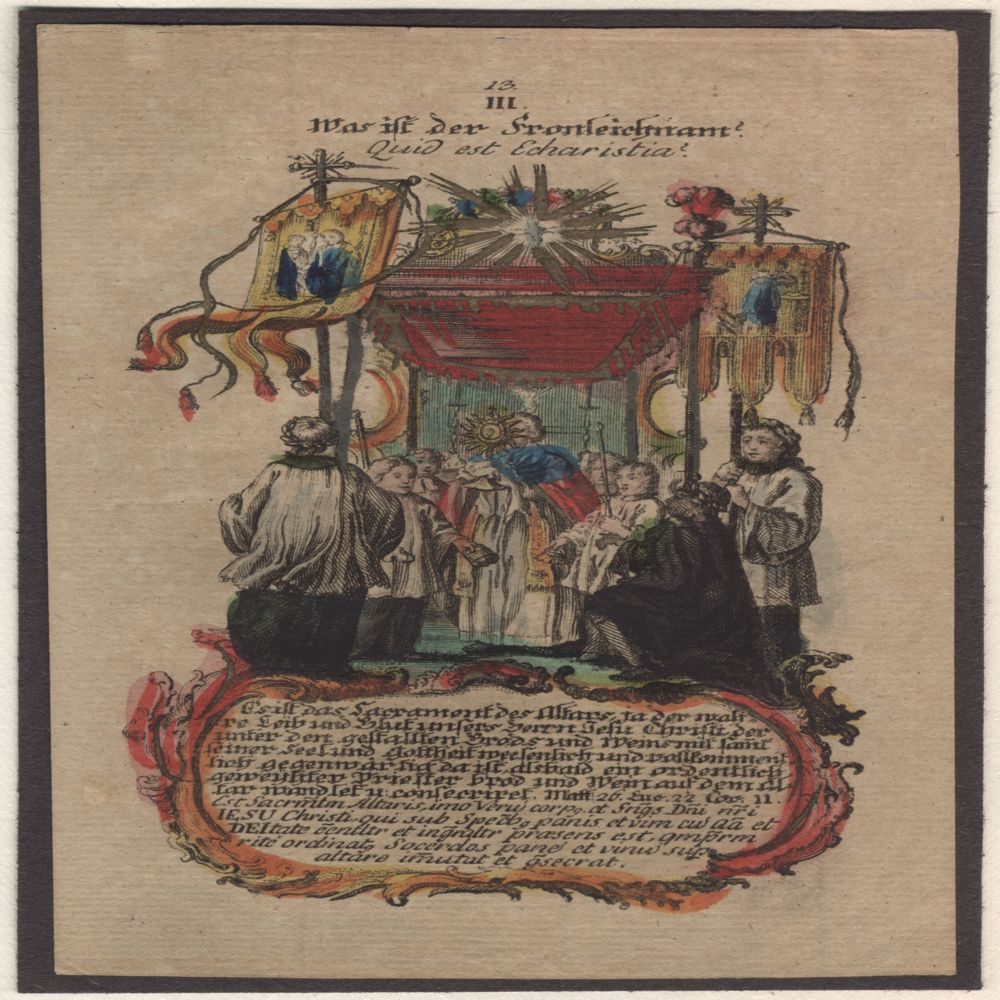 13.
III.
Was ist der Fronleichnam?
Quid est Echaristia?
Es ist das Sacrament des Altars, ja der wah
re Leib und Blut unsers Herrn Jesu Christi der
unter den gestalten Brods und Weins mit samt
seiner Seel und Gottheit weesentlich und vollkomment
lich gegenwärtig da ist, alsbald ein ordentlich
geweyhter Priester brod und Wein auf dem Al
tar wandlet u. consecriret. Matt. 26. Luc. 22. Cor. 11.
Est Sacrmtm Altaris, imo Verũ corpo. et Sngs Dñi nr̃i
IESU Christi, qui sub Specb9 panis et vini cũ aĩa et
DEItate eentltr et ingraltr præsens est, qmprm
rite ordinat9 Socerdos panẽ et vinũ sup.
altare imutat et ɋsecrat.